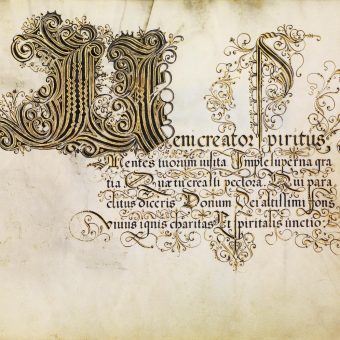 Veni creator spiritus
Mentes tuorum visita Imple superna gra
tia Quæ tu creasti pectora. Qui para
clitus diceris Donum Dei altissimi fons
Vivus ignis charitas Et spiritalis unctio